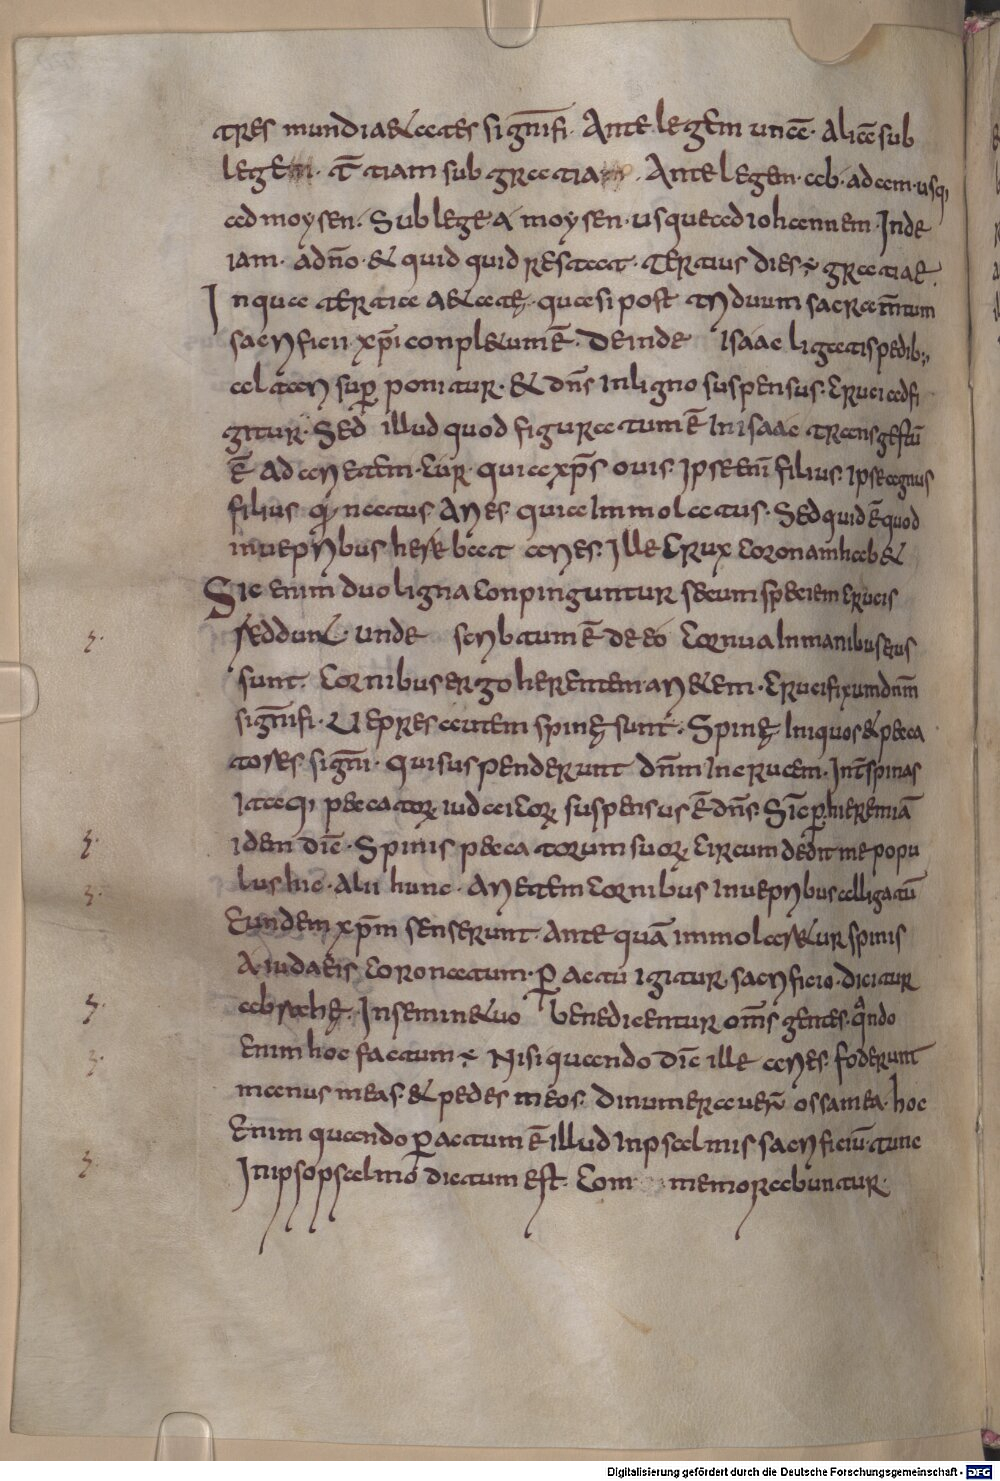 tres mundi aetates signifi. Ante legem unā. Aliā sub
legem. T̄tiam sub gratiam. Ante legem. ab. adam. usq;
ad moysen. Sub lege. a moysen. usque ad iohannem. Inde
iam. ad dn̄o. & quid quid restat. tertius dies ÷ gratiae.
In qua tertia aetate. quasi post triduum sacram̄tum
sacrificii xp̄i conpl&um ē. Deinde isaac ligatis pedib;
altari sup̄ponitur. & dn̄s in ligno suspensus. cruci adfi
gitur. Sed illud quod figuratum ē in isaac transgestū
ē ad arietem. cur. quia xp̄s ovis. ipse enī filius. ipse agnus
filius q̄ natus aries quia immolatus. Sed quid ē quod
in uepribus herebat aries. ille crux cornam hab&
Sic enim duo ligna conpinguntur secum speciem crucis
reddunt. unde scribtum ē de eo cornua in manibus eius
sunt. cornibus ergo herentem ari&em. crucifixum dn̄m
signifi. Uepres autem spinę sunt. Spinę iniquos & pecca
tores sign̄i. qui suspenderunt dn̄m in crucem. Int̄ spinas
itaq; peccatorꝝ iudaicorꝝ suspensus ē dn̄s. Sic̄ p̲ hieremiā
idem dic̄. Spinis peccatorum suorꝝ circumdedit me popu
lus hic. Alii hunc. arietem cornibus in uepribus alligatū
eundem xp̄m senserunt. ante quā immolar&ur spinis
a iudaeis coronatum. p̲actū igitur sacrificio. dicitur
abrahę. in semine tuo benedicentur om̄s gentes. q̄ndo
enim hoc factum ÷ nisi quando dic̄ ille aries. foderunt
manus meas. & pedes meos. dinumeraver̄ ossa mea. hoc
enim quando p̲actum ē illud in psalmis sacrificiū. tunc
in ipso psalmo dictum est. Com memorabuntur.
Digitalisierung gefördert durch die Deutsche Forschungsgemeinschaft - DFG